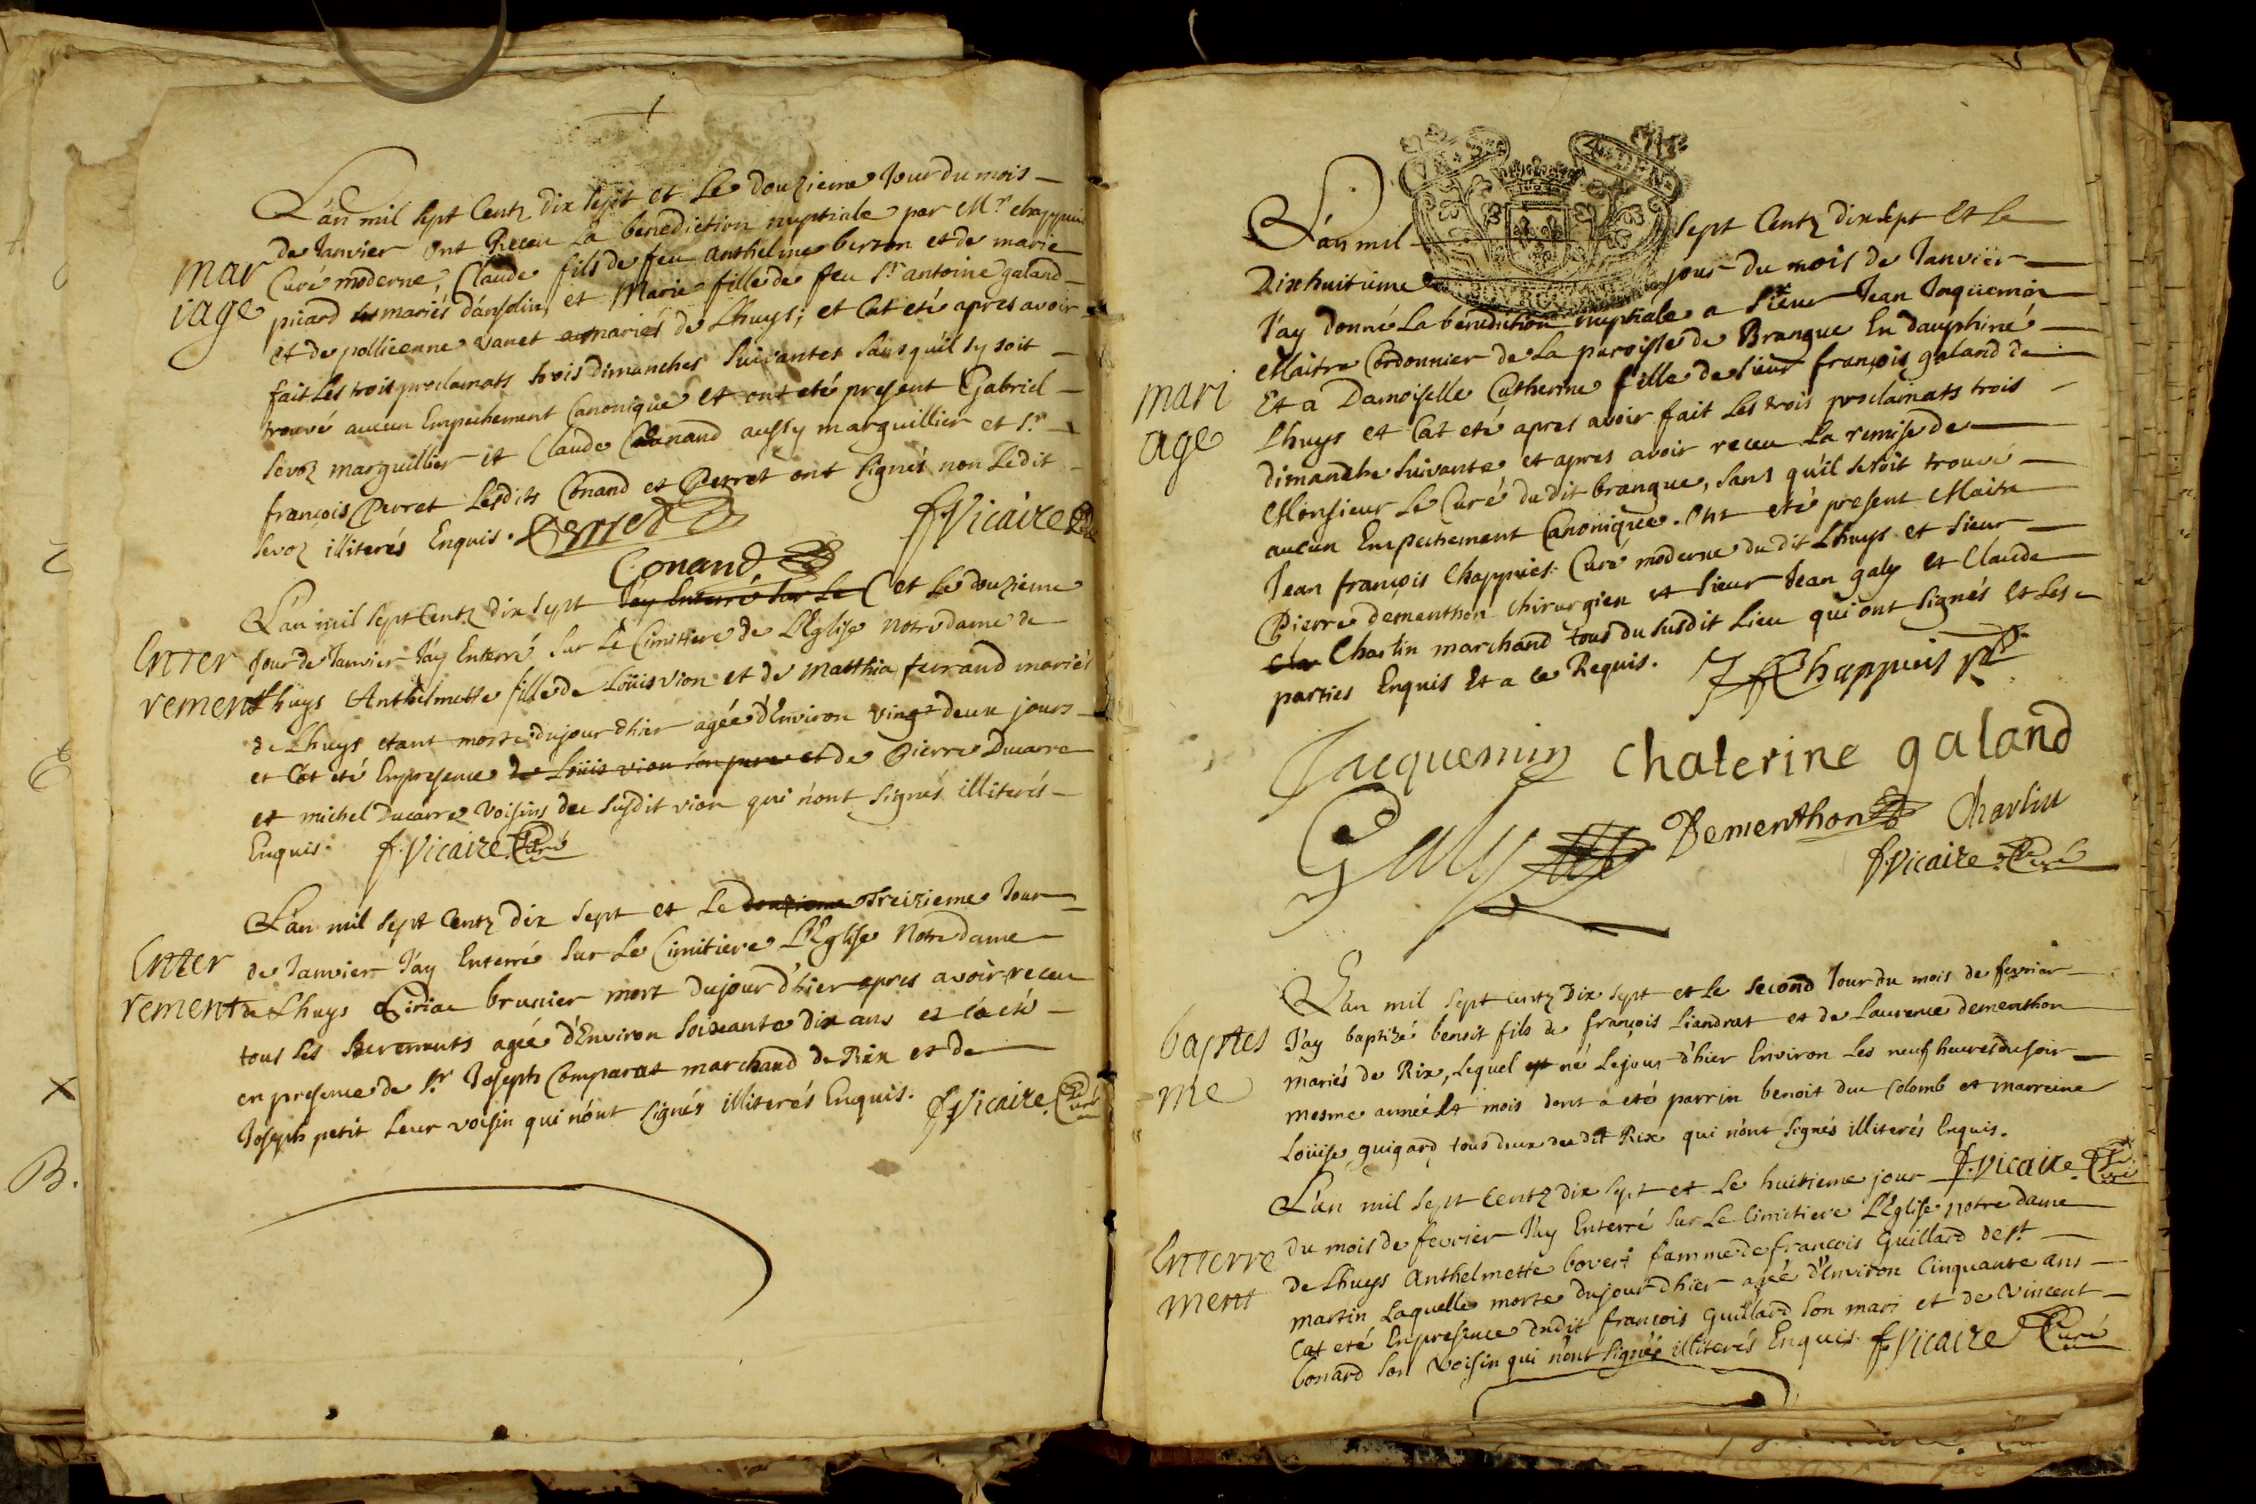 L'an mil sept Centz dix sept et Le douzieme Jour du mois
de Janvier ont Receu La benediction nuptiale par Mr chappuis
mar
iage
Curé moderne, Claude fils de feu Anthelme berson et de marie
picard mariés d'ansolin, et Marie fille de feu Sr antoine galand
et de pollicenne vanet mariés de Lhuys; et Cat eté apres avoir
fait Les trois proclamats trois dimanches Suivantes Sans qu'il sy soit
trouvé aucun Empechement Canonique et ont eté present Gabriel
Sevoz marguillier et Claude Conand aussy marguillier et Sr
françois Perret Lesdits Conand et Perret ont Signés non Ledit
Sevoz illiterés Enquis. Perret f.Vicaire Curé
Conand
L'an mil sept Centz dix sept Jay Enterré Sur Le et Le douzieme
Enter
rement
Jour de Janvier J'ay Enterré Sur Le Cimitiere de L'Eglise notre dame de
Lhuys Anthelmette fille de Loüis vion et de Matthia ferrand mariés
de Lhuys etant morte dujour dhier agée d'Environ vingt deux jours
et Cat eté Enpresence de Loüis vion son pere et de Pierre Ducarre
et michel Ducarre voisins du Susdit vion qui n'ont Signés illiterés
Enquis. f.Vicaire Curé
L'an mil sept Centz dix sept et Le douzieme Treizieme Jour
Enter
rement
de Janvier J'ay Enterré Sur Le Cimitiere L'Eglise Notre dame
de Lhuys Ciriac brunier mort dujour d'hier apres avoir receu
tous Les Sacrements agée d'Environ Soixante dix ans et Ca eté
en presence de Sr Joseph Comparat marchand de Rix et de
Joseph petit Leur voisin qui n'ont Signés illiterés Enquis. f.Vicaire Curé
L'an mil sept Centz dix sept et Le
Dixhuitieme jour du mois de Janvier
mari
age
J'ay donné La benediction nuptiale a Sieur Jean Jaquemin
Maitre Cordonnier de La paroisse de Brangue En dauphiné
Et a Damoiselle Catherine fille de Sieur françois galand de
Lhuys et Cat eté apres avoir fait Les trois proclamats trois
dimanche Suivante et apres avoir receu La remise de
Monsieur Le Curé du dit brangue, Sans qu'il Sesoit trouvé
aucun Empechement Canonique. Ont eté present Maitre
Jean françois Chappuis Curé moderne du dit Lhuys et Sieur
Pierre dementhon Chirurgien et Sieur Jean galy et Claude
Charlin marchand tous du Susdit Lieu qui ont Signés et Les
parties Enquis Et a ce Requis. J f Chappuis
Jacquemin chaterine galand
Galy Dementhon Charlin
f.Vicaire Curé
L'an mil sept centz Dix sept et Le second Jour du mois de fevrier
baptes
me
J'ay baptizé benoit fils de françois Liandrat et de Laurence dementhon
mariés de Rix, Lequel est né Lejour d'hier Environ Les neuf heures du soir
mesme année et mois dont a eté parrin benoit du Colomb et marreine
Loüise guigard tous deux du dit Rix qui n'ont Signés illiterés Enquis.
f.Vicaire Curé
L'an mil sept Centz dix sept et Le huitieme jour
Enterre
ment
du mois de fevrier J'ay Enterré Sur Le Cimitiere L'Eglise notre dame
de Lhuys Anthelmette bovert famme de françois Guillard de St
martin Laquelle morte dujour dhier agée d'Environ Cinquante ans
Cat eté Enpresence dudit françois Guillard Son mari et de Vincent
Conard Son voisin qui n'ont Signés illiterés Enquis. f.Vicaire Curé